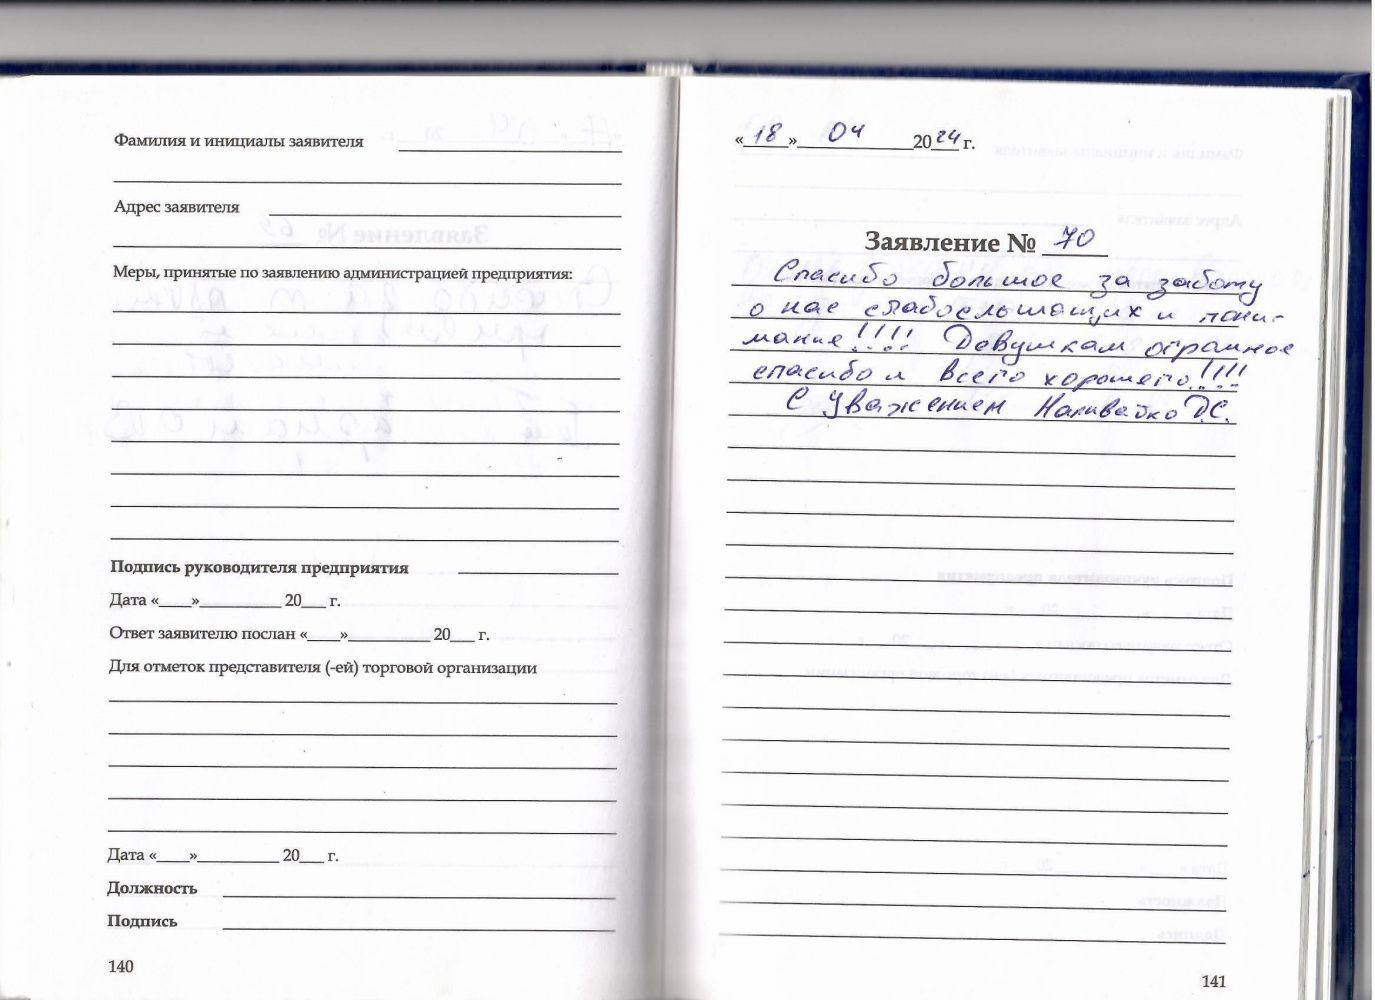 Фамилия и инициалы заявителя
Адрес заявителя
Меры, принятые по заявлению администрацией предприятия:
Подпись руководителя предприятия
Дата «____»__________ 20___ г.
Ответ заявителю послан «____»__________ 20___ г.
Для отметок представителя (-ей) торговой организации
Дата «____»__________ 20___ г.
Должность
Подпись
140
«18» 04 2024 г.
Заявление № 70
Спасибо большое за заботу
о нас слабослышащих и пони-
мание!!!! Девушкам огромное
спасибо и всего хорошего!!!!
С уважением Наливайко Д.С.
141